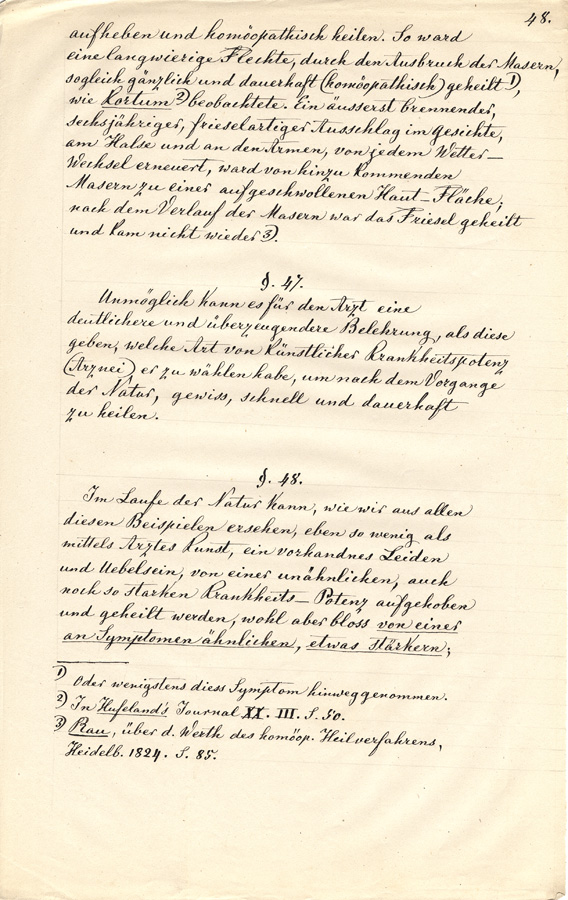 48.
aufheben und homöopathisch heilen. So ward
eine langwierige Flechte, durch den Ausbruch der Masern,
sogleich gänzlich und dauerhaft (homöopathisch) geheilt 1),
wie Kortum 2) beobachtete. Ein äusserst brennender,
sechsjähriger, frieselartiger Ausschlag im Gesichte,
am Halse und an den Armen, von jedem Wetter-
Wechsel erneuert, ward von hinzu kommenden
Masern zu einer aufgeschwollenen Haut-Fläche;
nach dem Verlauf der Masern war das Friesel geheilt
und kam nicht wieder 3).
§. 47.
Unmöglich kann es für den Arzt eine
deutlichere und überzeugendere Belehrung, als diese
geben, welche Art von künstlicher Krankheitspotenz
(Arznei) er zu wählen habe, um nach dem Vorgange
der Natur, gewiss, schnell und dauerhaft
zu heilen.
§. 48.
Im Laufe der Natur kann, wie wir aus allen
diesen Beispielen ersehen, eben so wenig als
mittels Arztes Kunst, ein vorhandnes Leiden
und Uebelsein, von einer unähnlichen, auch
noch so starken Krankheits-Potenz aufgehoben
und geheilt werden, wohl aber bloss von einer
an Symptomen ähnlichen, etwas stärkern;
1) Oder wenigstens diess Symptom hinweggenommen.
2) In Hufeland's Journal XX. III. S. 50.
3) Rau, über d. Werth des homöop. Heilverfahrens,
Heidelb. 1824. S. 85.